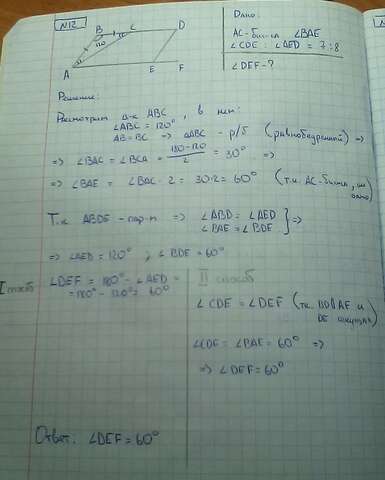 №12
B C D
120
A E F
Дано:
AC - бис-са ∠BAE
∠CDE : ∠AED = 7:8
∠DEF - ?
Решение:
Рассмотрим Δ-к ABC, в нём:
∠ABC = 120°
AB = BC ⇒ ΔABC - р/б (равнобедренный) ⇒
⇒ ∠BAC = ∠BCA = 180-120/2 = 30° ⇒
⇒ ∠BAE = ∠BAC · 2 = 30·2 = 60° (т.к. AC - бис-са,
Т.к ABDE - пар-м ⇒ ∠ABD = ∠AED
∠BAE = ∠BDE } ⇒
⇒ ∠AED = 120°, ∠BDE = 60°
I способ
∠DEF = 180° - ∠AED =
= 180° - 120° = 60°
II способ
∠CDE = ∠DEF (т.к. BD∥AE и
DE секущая)
∠CDE = ∠BAE = 60° ⇒
⇒ ∠DEF = 60°
Ответ: ∠DEF = 60°